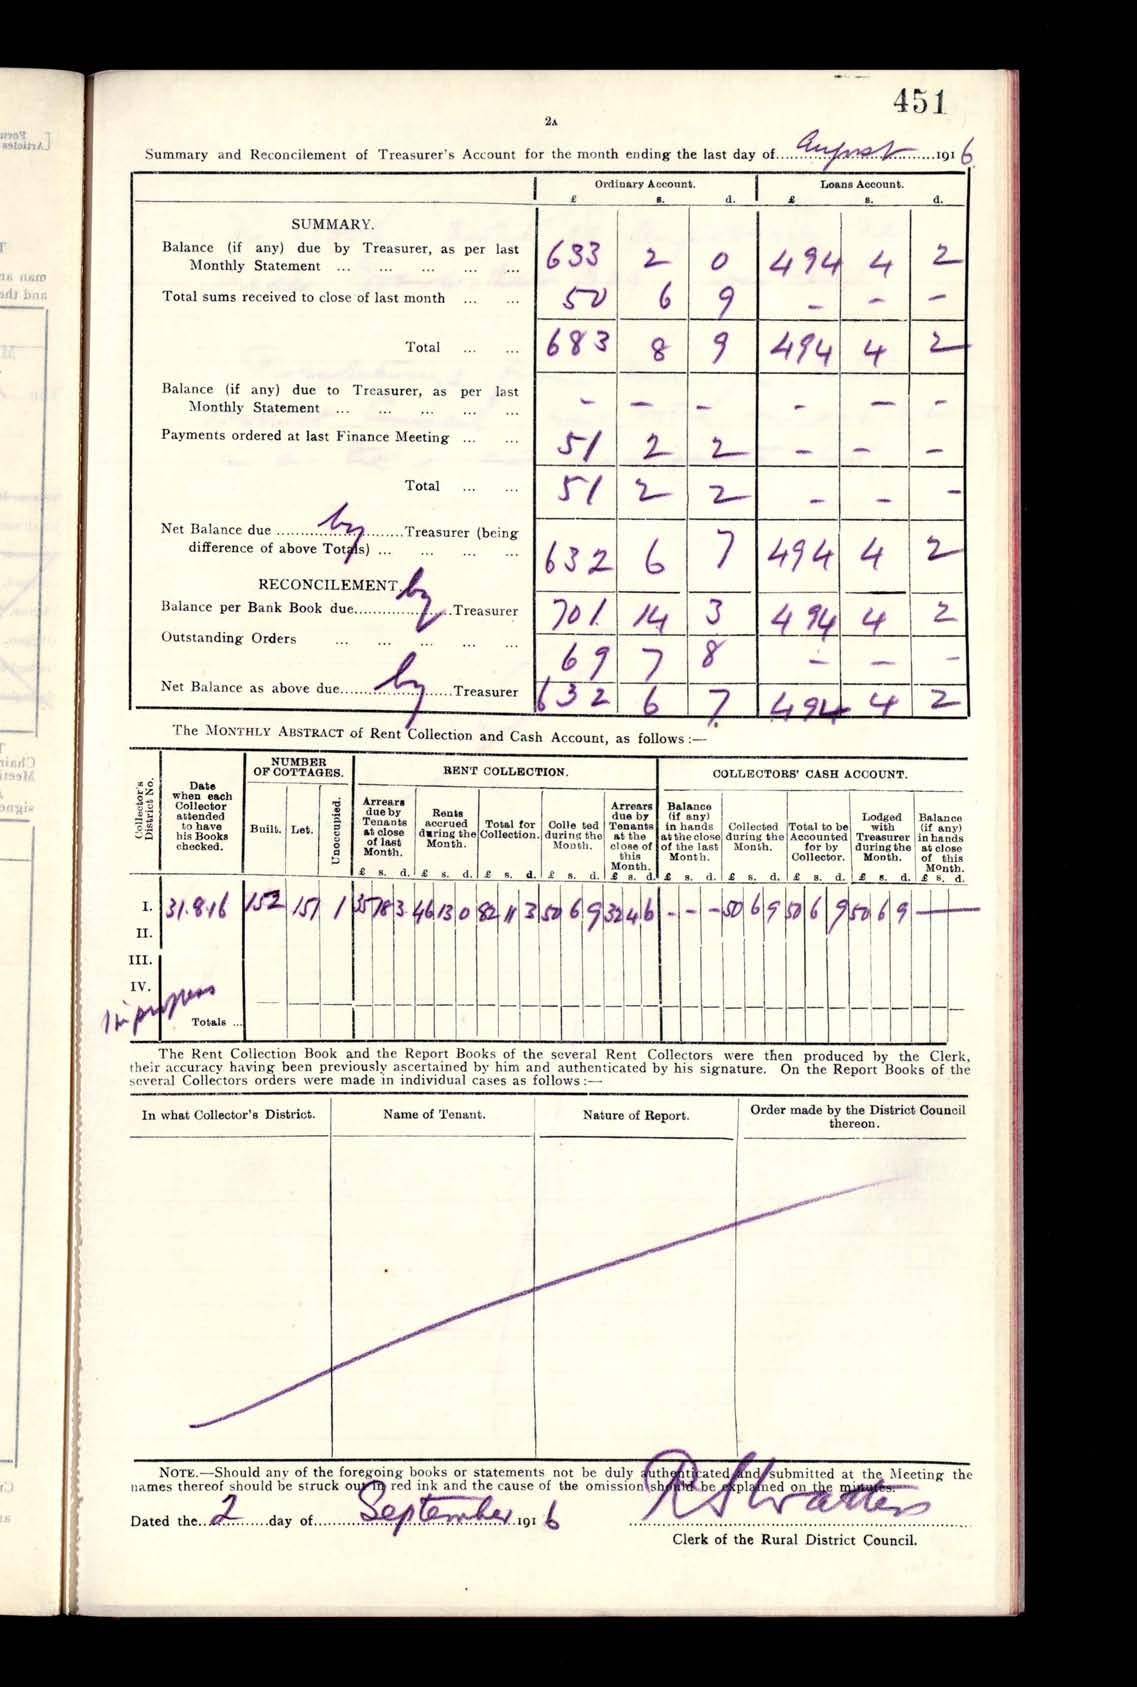 451
2A
Summary and Reconcilement of Treasurer's Account for the month ending the last day of August 1916
Ordinary Account. Loans Account.
£ s. d. £ s. d.
SUMMARY.
Balance (if any) due by Treasurer, as per last
Monthly Statement ... ... ... ... ... 633 2 0 494 4 2
Total sums received to close of last month ... ... 50 6 9 - - -
Total ... ... 683 8 9 494 4 2
Balance (if any) due to Treasurer, as per last
Monthly Statement ... ... ... ... ... - - - - - -
Payments ordered at last Finance Meeting ... ... 51 2 2 - - -
Total ... ... 51 2 2 - - -
Net Balance due by Treasurer (being
difference of above Totals) ... ... ... ... 632 6 7 494 4 2
RECONCILEMENT.
Balance per Bank Book due by Treasurer 701 14 3 494 4 2
Outstanding Orders ... ... ... ... ... 69 7 8 - - -
Net Balance as above due by Treasurer 632 6 7 494 4 2
The MONTHLY ABSTRACT of Rent Collection and Cash Account, as follows :—
Collector's District No.
Date when each Collector attended to have his Books checked.
NUMBER OF COTTAGES.
Built. Let. Unoccupied.
RENT COLLECTION.
Arrears due by Tenants at close of last Month.
Rents accrued during the Month.
Total for Collection.
Colle ted during the Month.
Arrears due by Tenants at the close of this Month.
COLLECTORS' CASH ACCOUNT.
Balance (if any) in hands at the close of the last Month.
Collected during the Month.
Total to be Accounted for by Collector.
Lodged with Treasurer during the Month.
Balance (if any) in hands at close of this Month.
£ s. d. £ s. d. £ s. d. £ s. d. £ s. d. £ s. d. £ s. d. £ s. d. £ s. d. £ s. d.
I. 31.8.16 152 151 1 35 18 3 46 13 0 82 11 3 50 6 9 32 4 6 - - - 50 6 9 50 6 9 50 6 9 —
II.
III.
IV.
In progress
Totals ...
The Rent Collection Book and the Report Books of the several Rent Collectors were then produced by the Clerk,
their accuracy having been previously ascertained by him and authenticated by his signature. On the Report Books of the
several Collectors orders were made in individual cases as follows :—
In what Collector's District. Name of Tenant. Nature of Report. Order made by the District Council thereon.
NOTE.—Should any of the foregoing books or statements not be duly authenticated and submitted at the Meeting the
names thereof should be struck out in red ink and the cause of the omission should be explained on the minutes.
Dated the 2 day of September 1916
R S Watters
Clerk of the Rural District Council.